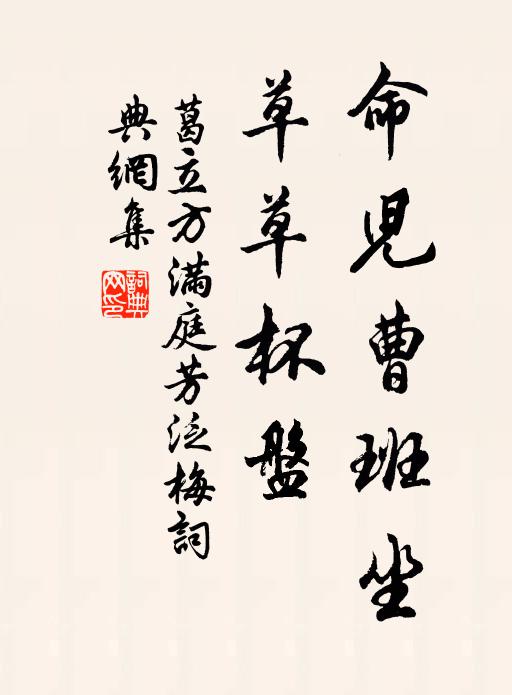 命児曹班坐
草草杯盤
葛立方滿庭芳泛梅詞
典網集
詞典網印